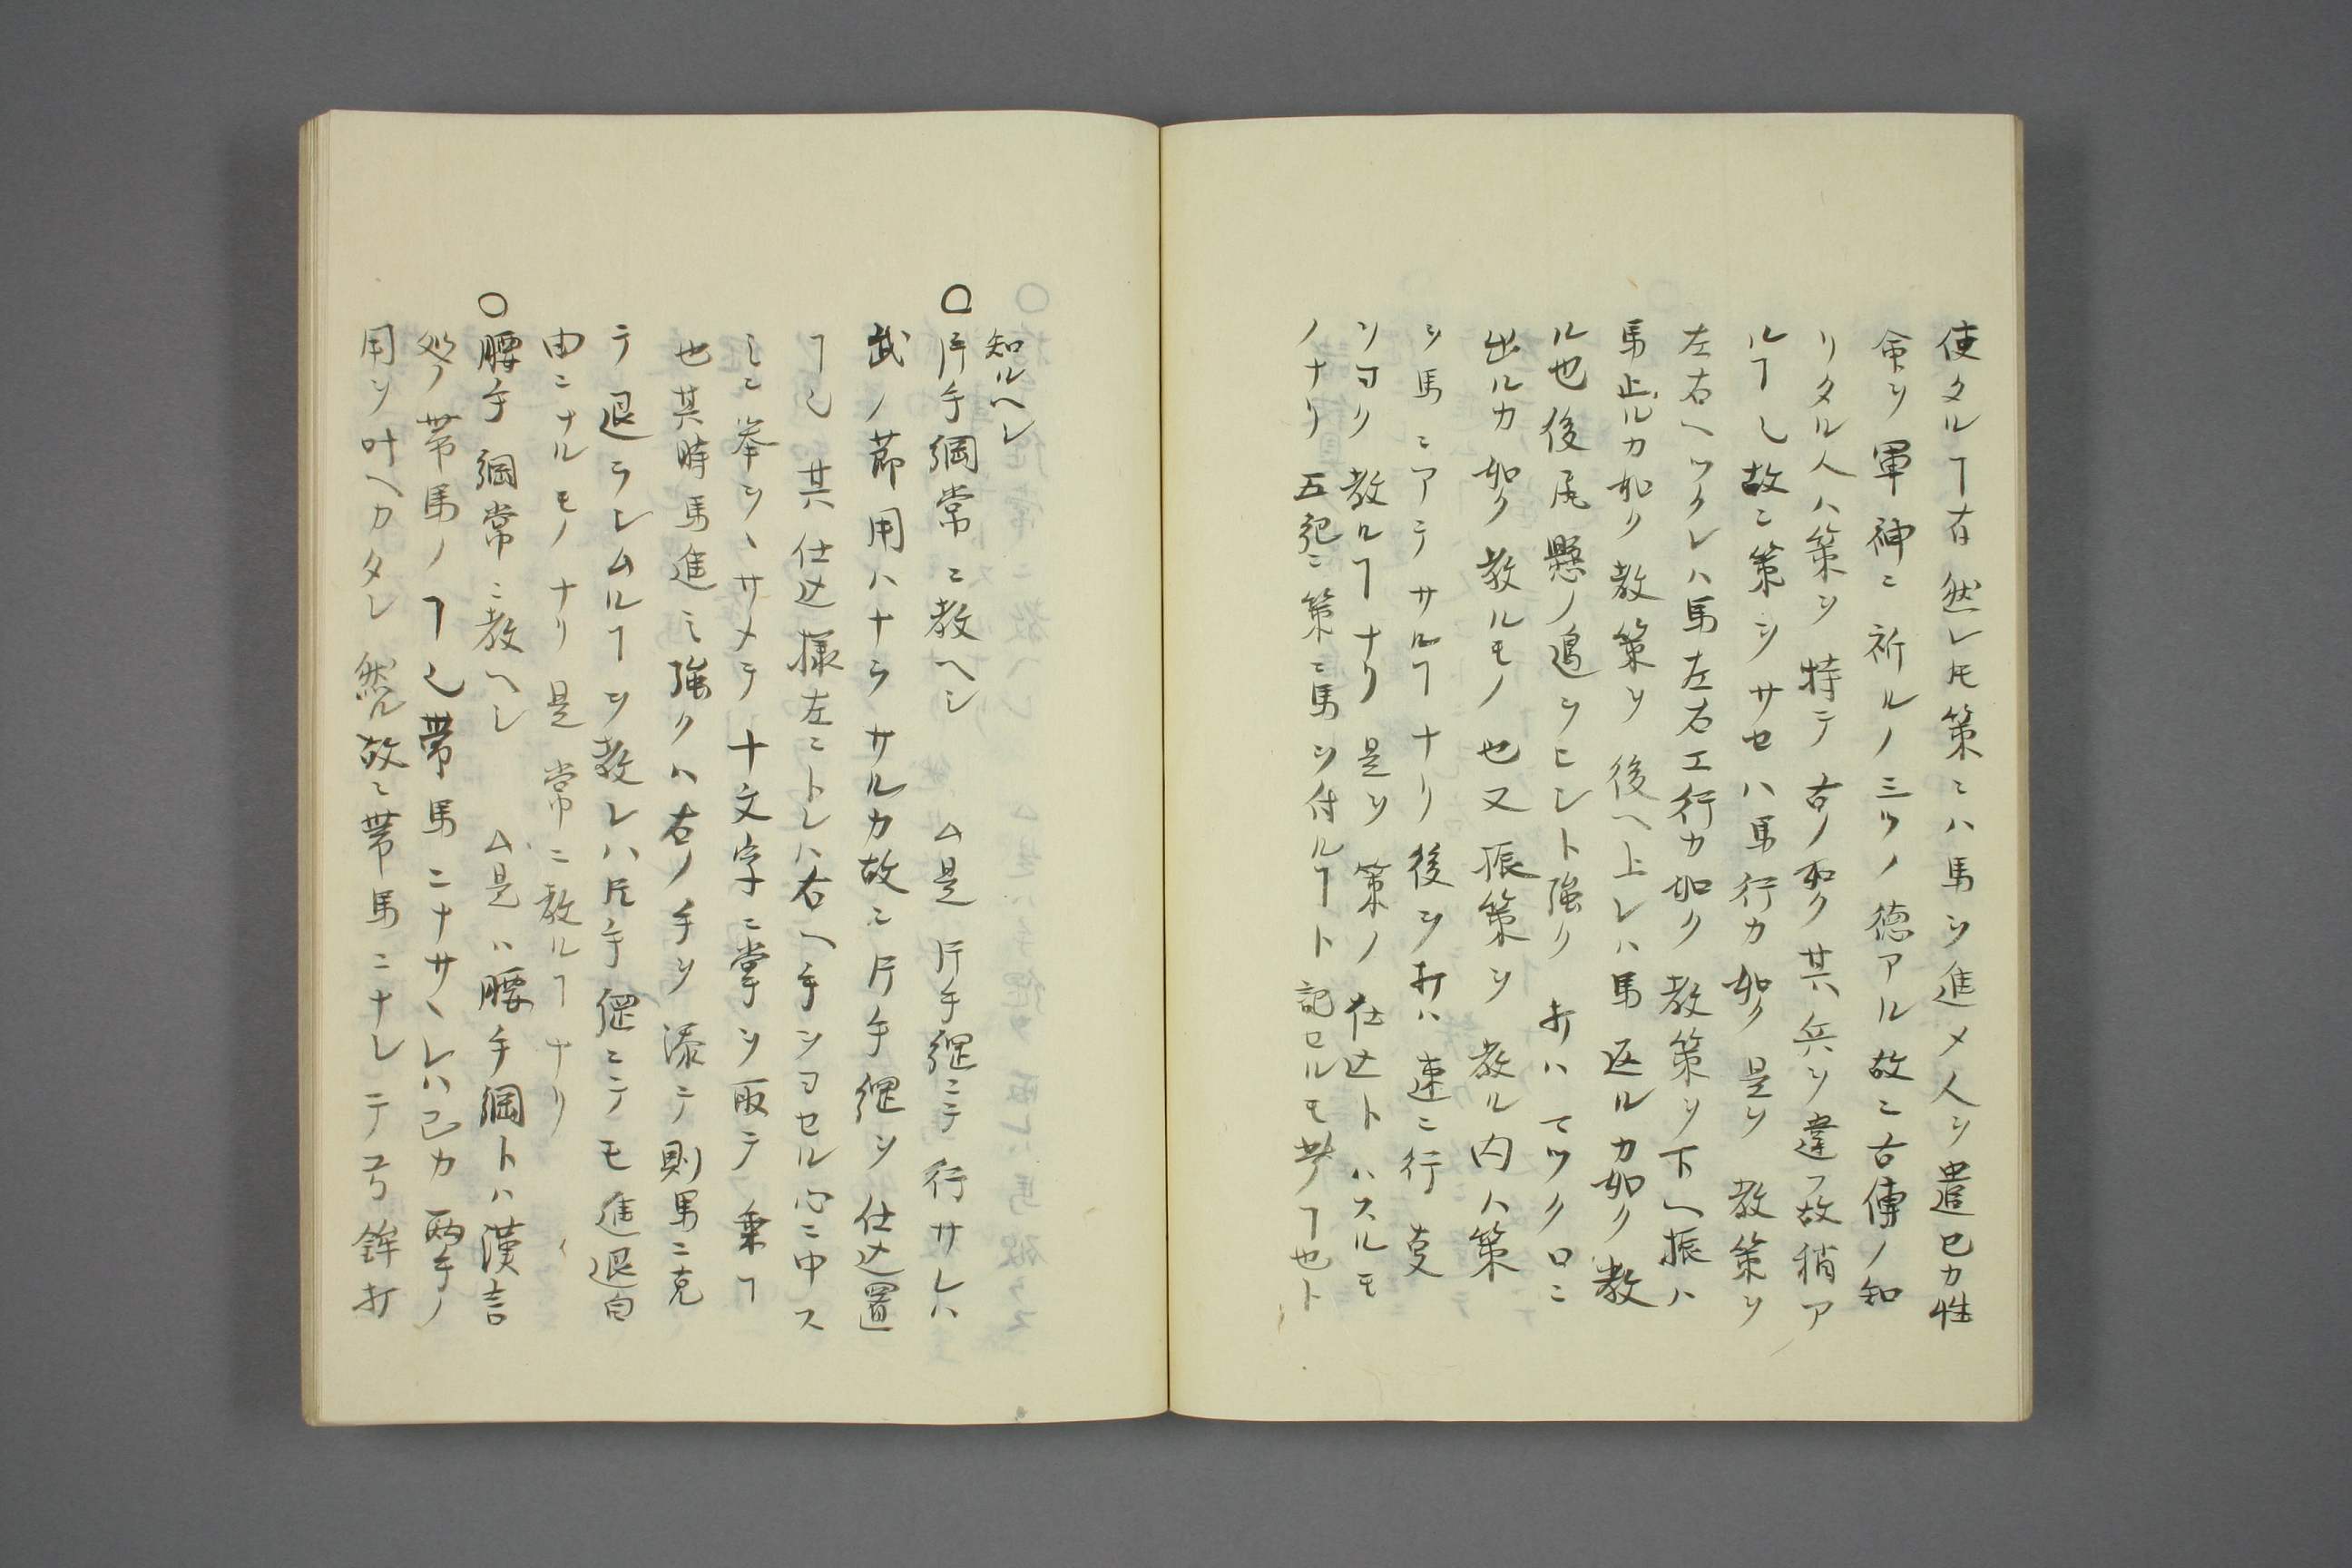 使タルヿ有然レ𪜈策ニハ馬ヲ進メ人ヲ遣已カ性
命ヲ軍神ニ祈ルノ三ツノ徳アル故ニ古傳ノ知
リタル人ハ策ヲ持テ右ノ如ク其兵ヲ違フ故稍ア
ルヿ也故ニ策ヲサセハ馬行カ如ク是ヲ教策ヲ
左右ヘツクレハ馬左右エ行カ如ク教策ヲ下ヘ振ハ
馬止ルカ如ク教策ヲ後ヘ上レハ馬返ルカ如ク教
ル也後尾懸ノ追ヲヒント強ク打ハテツクロニ
出ルカ如ク教ルモノ也又振策ヲ教ル内ハ策
ヲ馬ニアテサルヿナリ後ヲ打ハ速ニ行
ヲヨク教ルヿナリ是ヲ策ノ仕込トハスルモ
ノナリ五記ニ策ニ馬ヲ付ルヿト記ロルモ此ノヿ也ト
知ルヘシ
○片手綱常ニ教ヘシ ム是片手綱ニテ行サレハ
武ノ節用ハナラサルカ故ニ片手綱ヲ仕込置
ヿ也其仕込様左ニトレハ右ヘ手ヲヨセル心ニ中ス
ミニ拳ヲヽサメテ十文字ニ掌ヲ取テ乗ヿ
也其時馬進ミ強クハ右ノ手ヲ添テ則馬ニ克
テ退ラシムルヿヲ教レハ片手綱ニテモ進退自
由ニナルモノナリ是常ニ教ルヿナリ
○腰手綱常ニ教ヘシ ム是ハ腰手綱トハ漢言
処ノ帯馬ノヿ也帯馬ニナサヽレハ己カ両手ノ
用ヲ叶ヘカタシ然ル故ニ帯馬ニナレテ弓鉾打